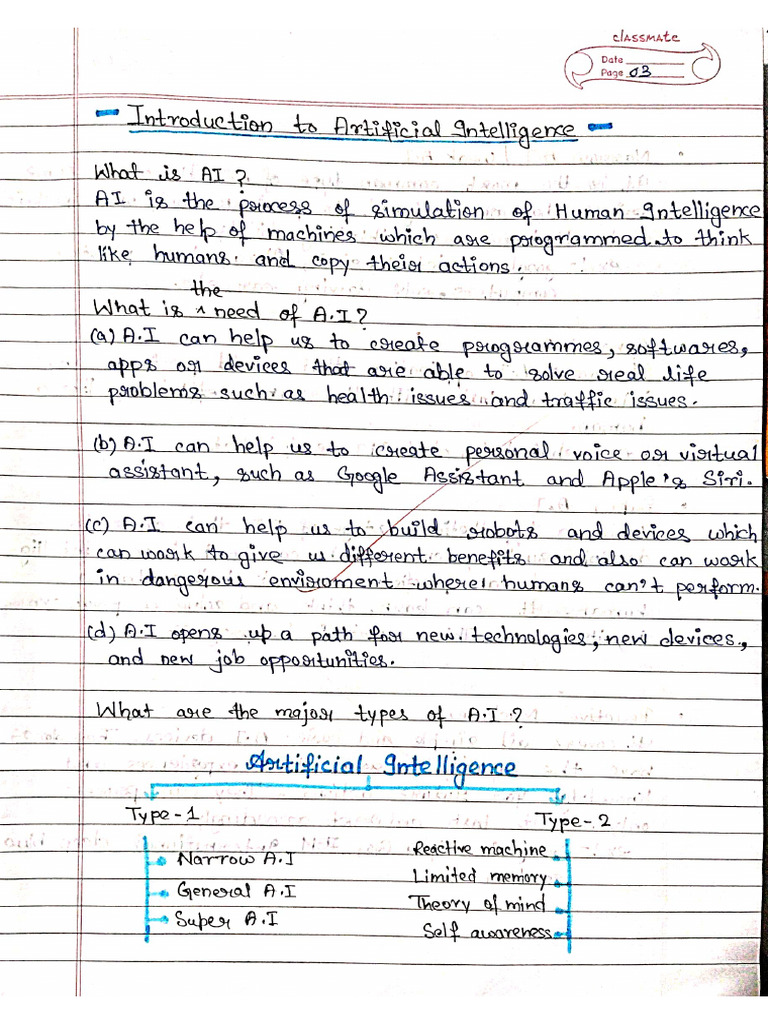 classmate
Date
Page 03
Introduction to Artificial Intelligence
What is AI?
AI is the process of simulation of Human Intelligence
by the help of machines which are programmed to think
like humans and copy their actions.
the
What is ^ need of A.I?
(a) A.I can help us to create programmes, softwares,
apps or devices that are able to solve real life
problems such as health issues and traffic issues.
(b) A.I can help us to create personal voice or virtual
assistant, such as Google Assistant and Apple's Siri.
(c) A.I can help us to build robots and devices which
can work to give us different benefits and also can work
in dangerous enviroment where humans can't perform.
(d) A.I opens up a path for new technologies, new devices,
and new job opportunities.
What are the major types of A.I?
Artificial Intelligence
Type-1
Type-2
Narrow A.I
General A.I
Super A.I
Reactive machine
Limited memory
Theory of mind
Self awareness